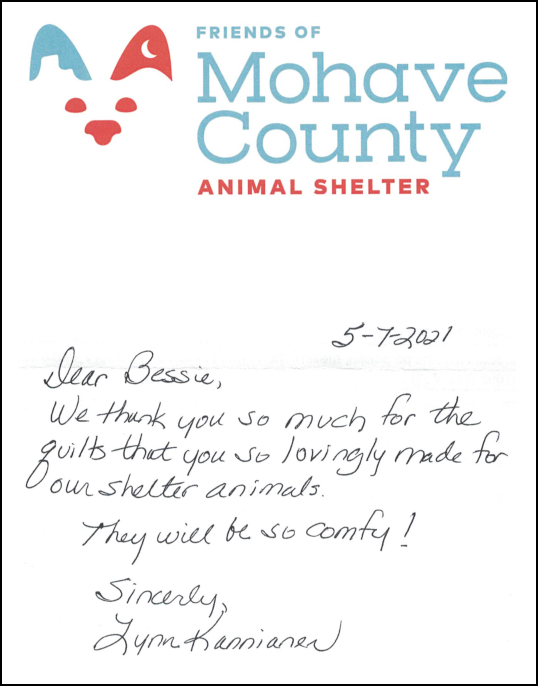 FRIENDS OF
Mohave
County
ANIMAL SHELTER
5-7-2021
Dear Bessie,
We thank you so much for the
quilts that you so lovingly made for
our shelter animals.
They will be so comfy!
Sincerely,
Lynn Kannianen